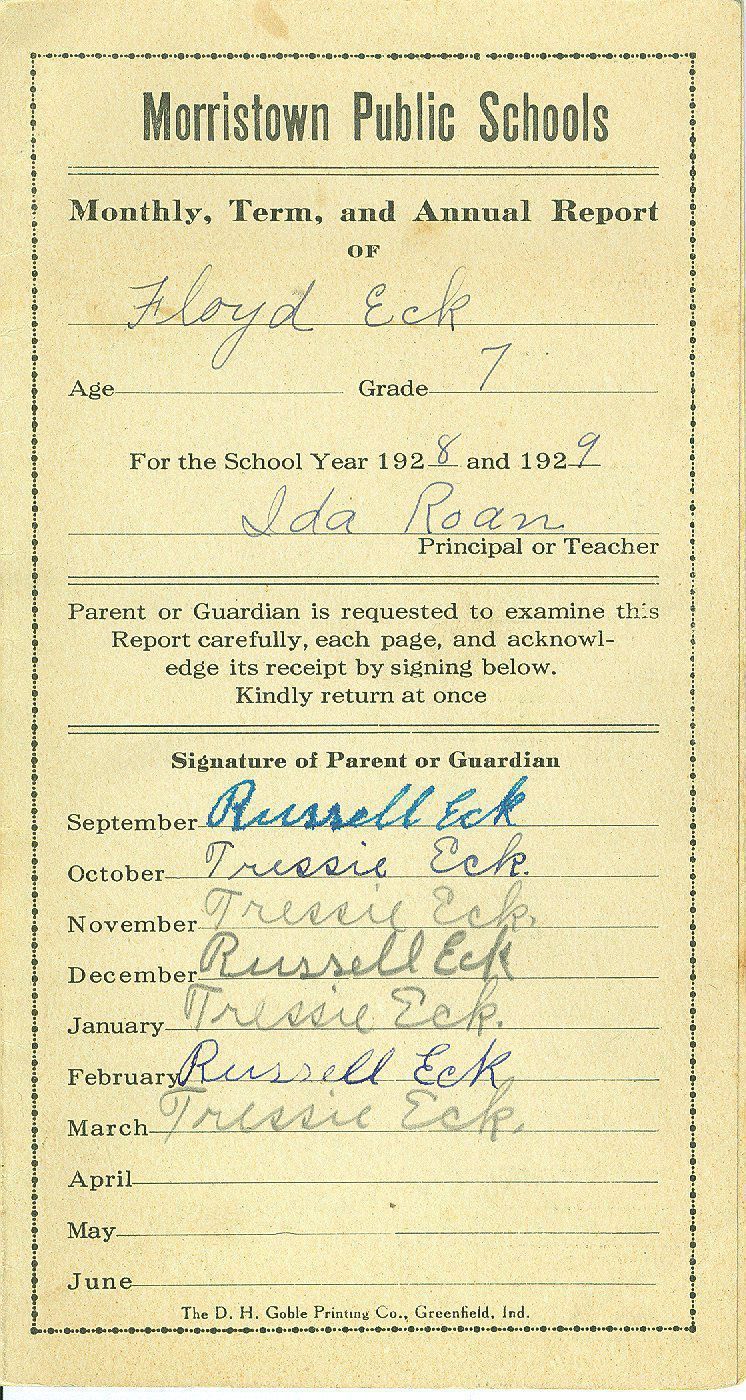 Morristown Public Schools
Monthly, Term, and Annual Report
OF
Floyd Eck
Age Grade 7
For the School Year 1928 and 1929
Ida Roan
Principal or Teacher
Parent or Guardian is requested to examine this
Report carefully, each page, and acknowl-
edge its receipt by signing below.
Kindly return at once
Signature of Parent or Guardian
September Russell Eck
October Tressie Eck.
November Tressie Eck.
December Russell Eck
January Tressie Eck.
February Russell Eck
March Tressie Eck.
April
May
June
The D. H. Goble Printing Co., Greenfield, Ind.